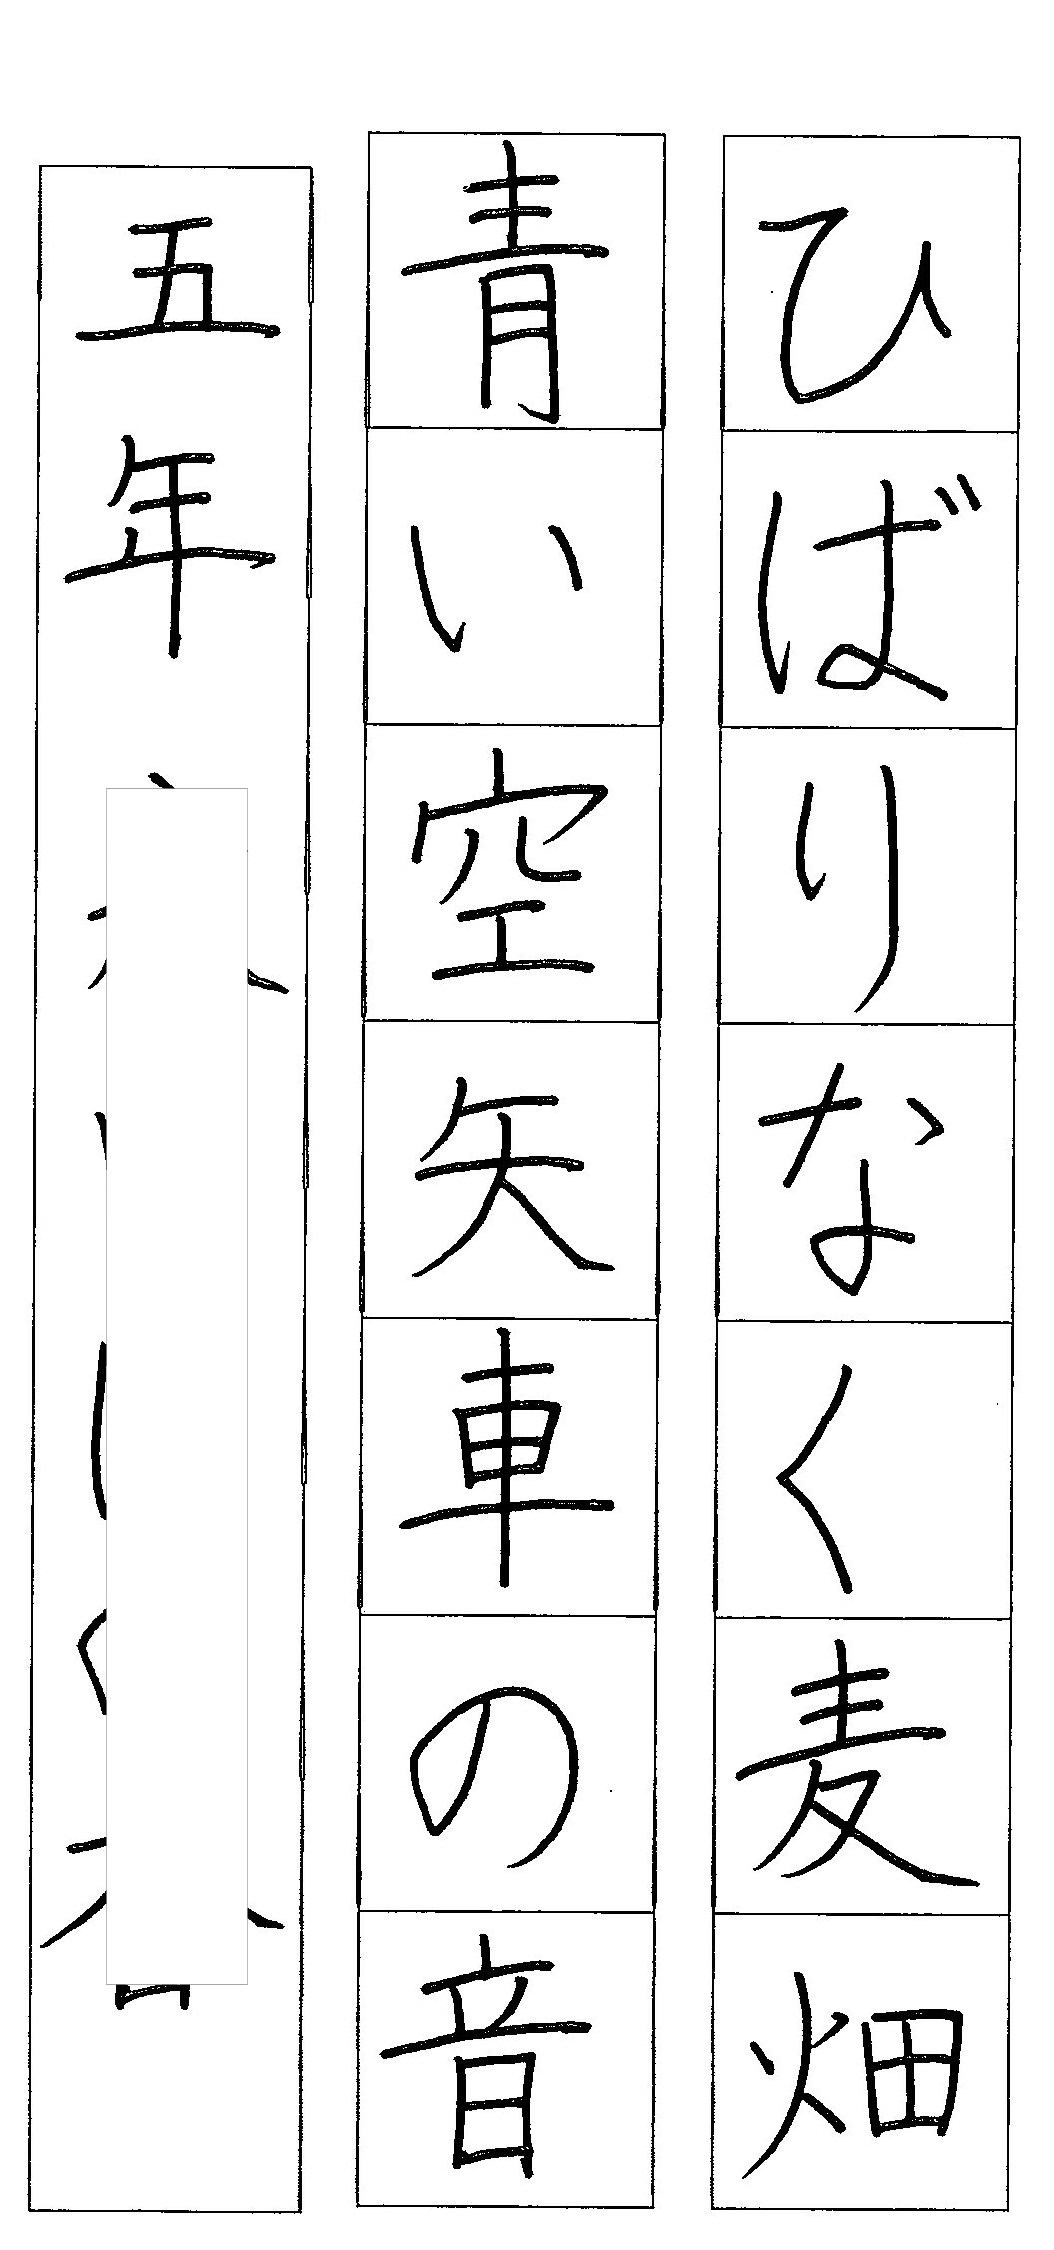 ひばりなく麦畑
青い空矢車の音
五年